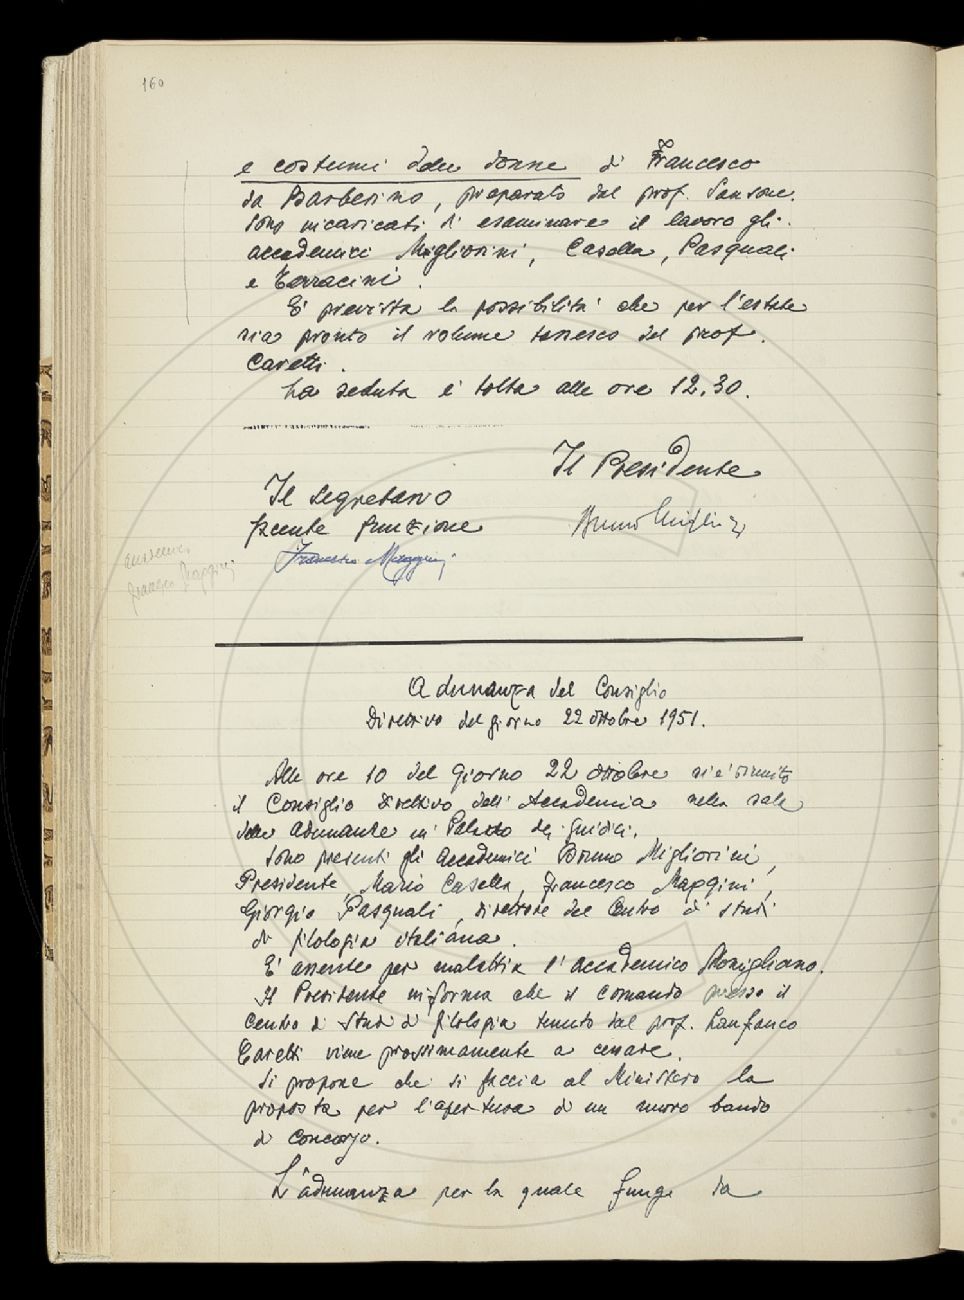 160
e costumi delle donne di Francesco
da Barberino, preparato dal prof. Sansone.
Sono incaricati di esaminare il lavoro gli
accademici Migliorini, Casella, Pasquali
e Terracini.
E' prevista la possibilità che per l'estate
sia pronto il volume tassesco del prof.
Caretti.
La seduta è tolta alle ore 12,30.
Il Presidente
Il segretario
facente funzione
Bruno Migliorini
Francesco Maggini
Francesco Maggini
Adunanza del Consiglio
Direttivo del giorno 22 ottobre 1951.
Alle ore 10 del giorno 22 ottobre si è riunito
il Consiglio Direttivo dell'Accademia nella sala
delle adunanze in Palazzo dei Giudici.
Sono presenti gli accademici Bruno Migliorini,
Presidente, Mario Casella, Francesco Maggini,
Giorgio Pasquali, direttore del Centro di studi
di filologia italiana.
E' assente per malattia l'accademico Momigliano.
Il Presidente informa che il comando presso il
Centro di Studi di filologia tenuto dal prof. Lanfranco
Caretti viene prossimamente a cessare.
Si propone che si faccia al Ministero la
proposta per l'apertura di un nuovo bando
di concorso.
L'adunanza per la quale funge da